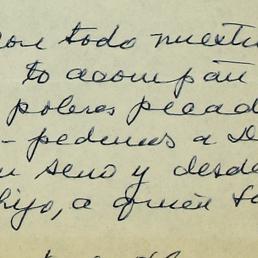 por todo nuestr
to acompañ
pobres pecad
- pedimos a D
u seno y desde
hijo, a quien ta